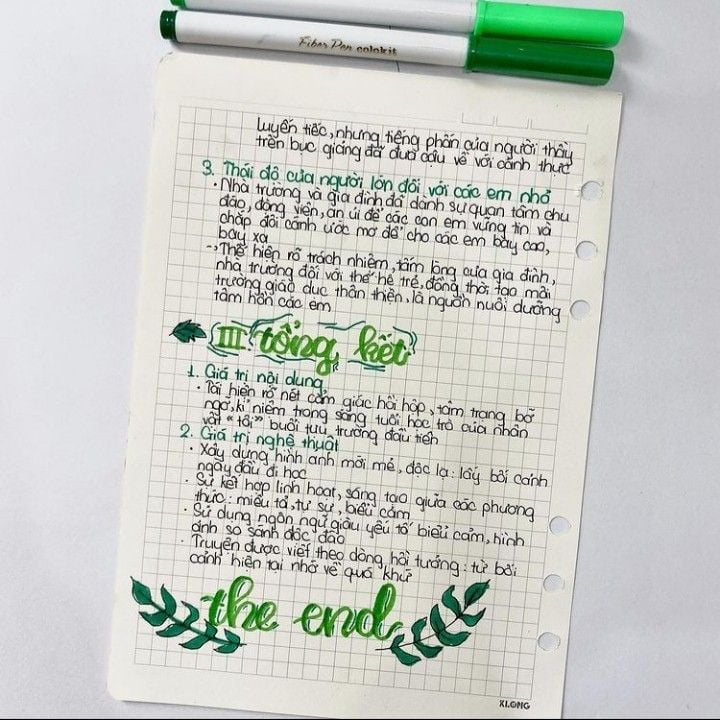 Fiber Pen colokit
luyến tiếc, nhưng tiếng phấn của người thầy
trên bục giảng đã đưa cậu về với cảnh thực
3. Thái độ của người lớn đối với các em nhỏ
· Nhà trường và gia đình đã dành sự quan tâm chu
đáo, động viên, an ủi để các con em vững tin và
chắp đôi cánh ước mơ để cho các em bay cao,
bay xa
→ Thể hiện rõ trách nhiệm, tấm lòng của gia đình,
nhà trường đối với thế hệ trẻ, đồng thời tạo môi
trường giáo dục thân thiện, là nguồn nuôi dưỡng
tâm hồn các em
III tổng kết
1. Giá trị nội dung
· Tái hiện rõ nét cảm giác hồi hộp, tâm trạng bỡ
ngỡ, kỉ niệm trong sáng tuổi học trò của nhân
vật "tôi" buổi tựu trường đầu tiên
2. Giá trị nghệ thuật
· Xây dựng hình ảnh mới mẻ, độc lạ: lấy bối cảnh
ngày đầu đi học
· Sự kết hợp linh hoạt, sáng tạo giữa các phương
thức: miêu tả, tự sự, biểu cảm
· Sử dụng ngôn ngữ giàu yếu tố biểu cảm, hình
ảnh so sánh độc đáo
· Truyện được viết theo dòng hồi tưởng: từ bối
cảnh hiện tại nhớ về quá khứ
the end
KLONG